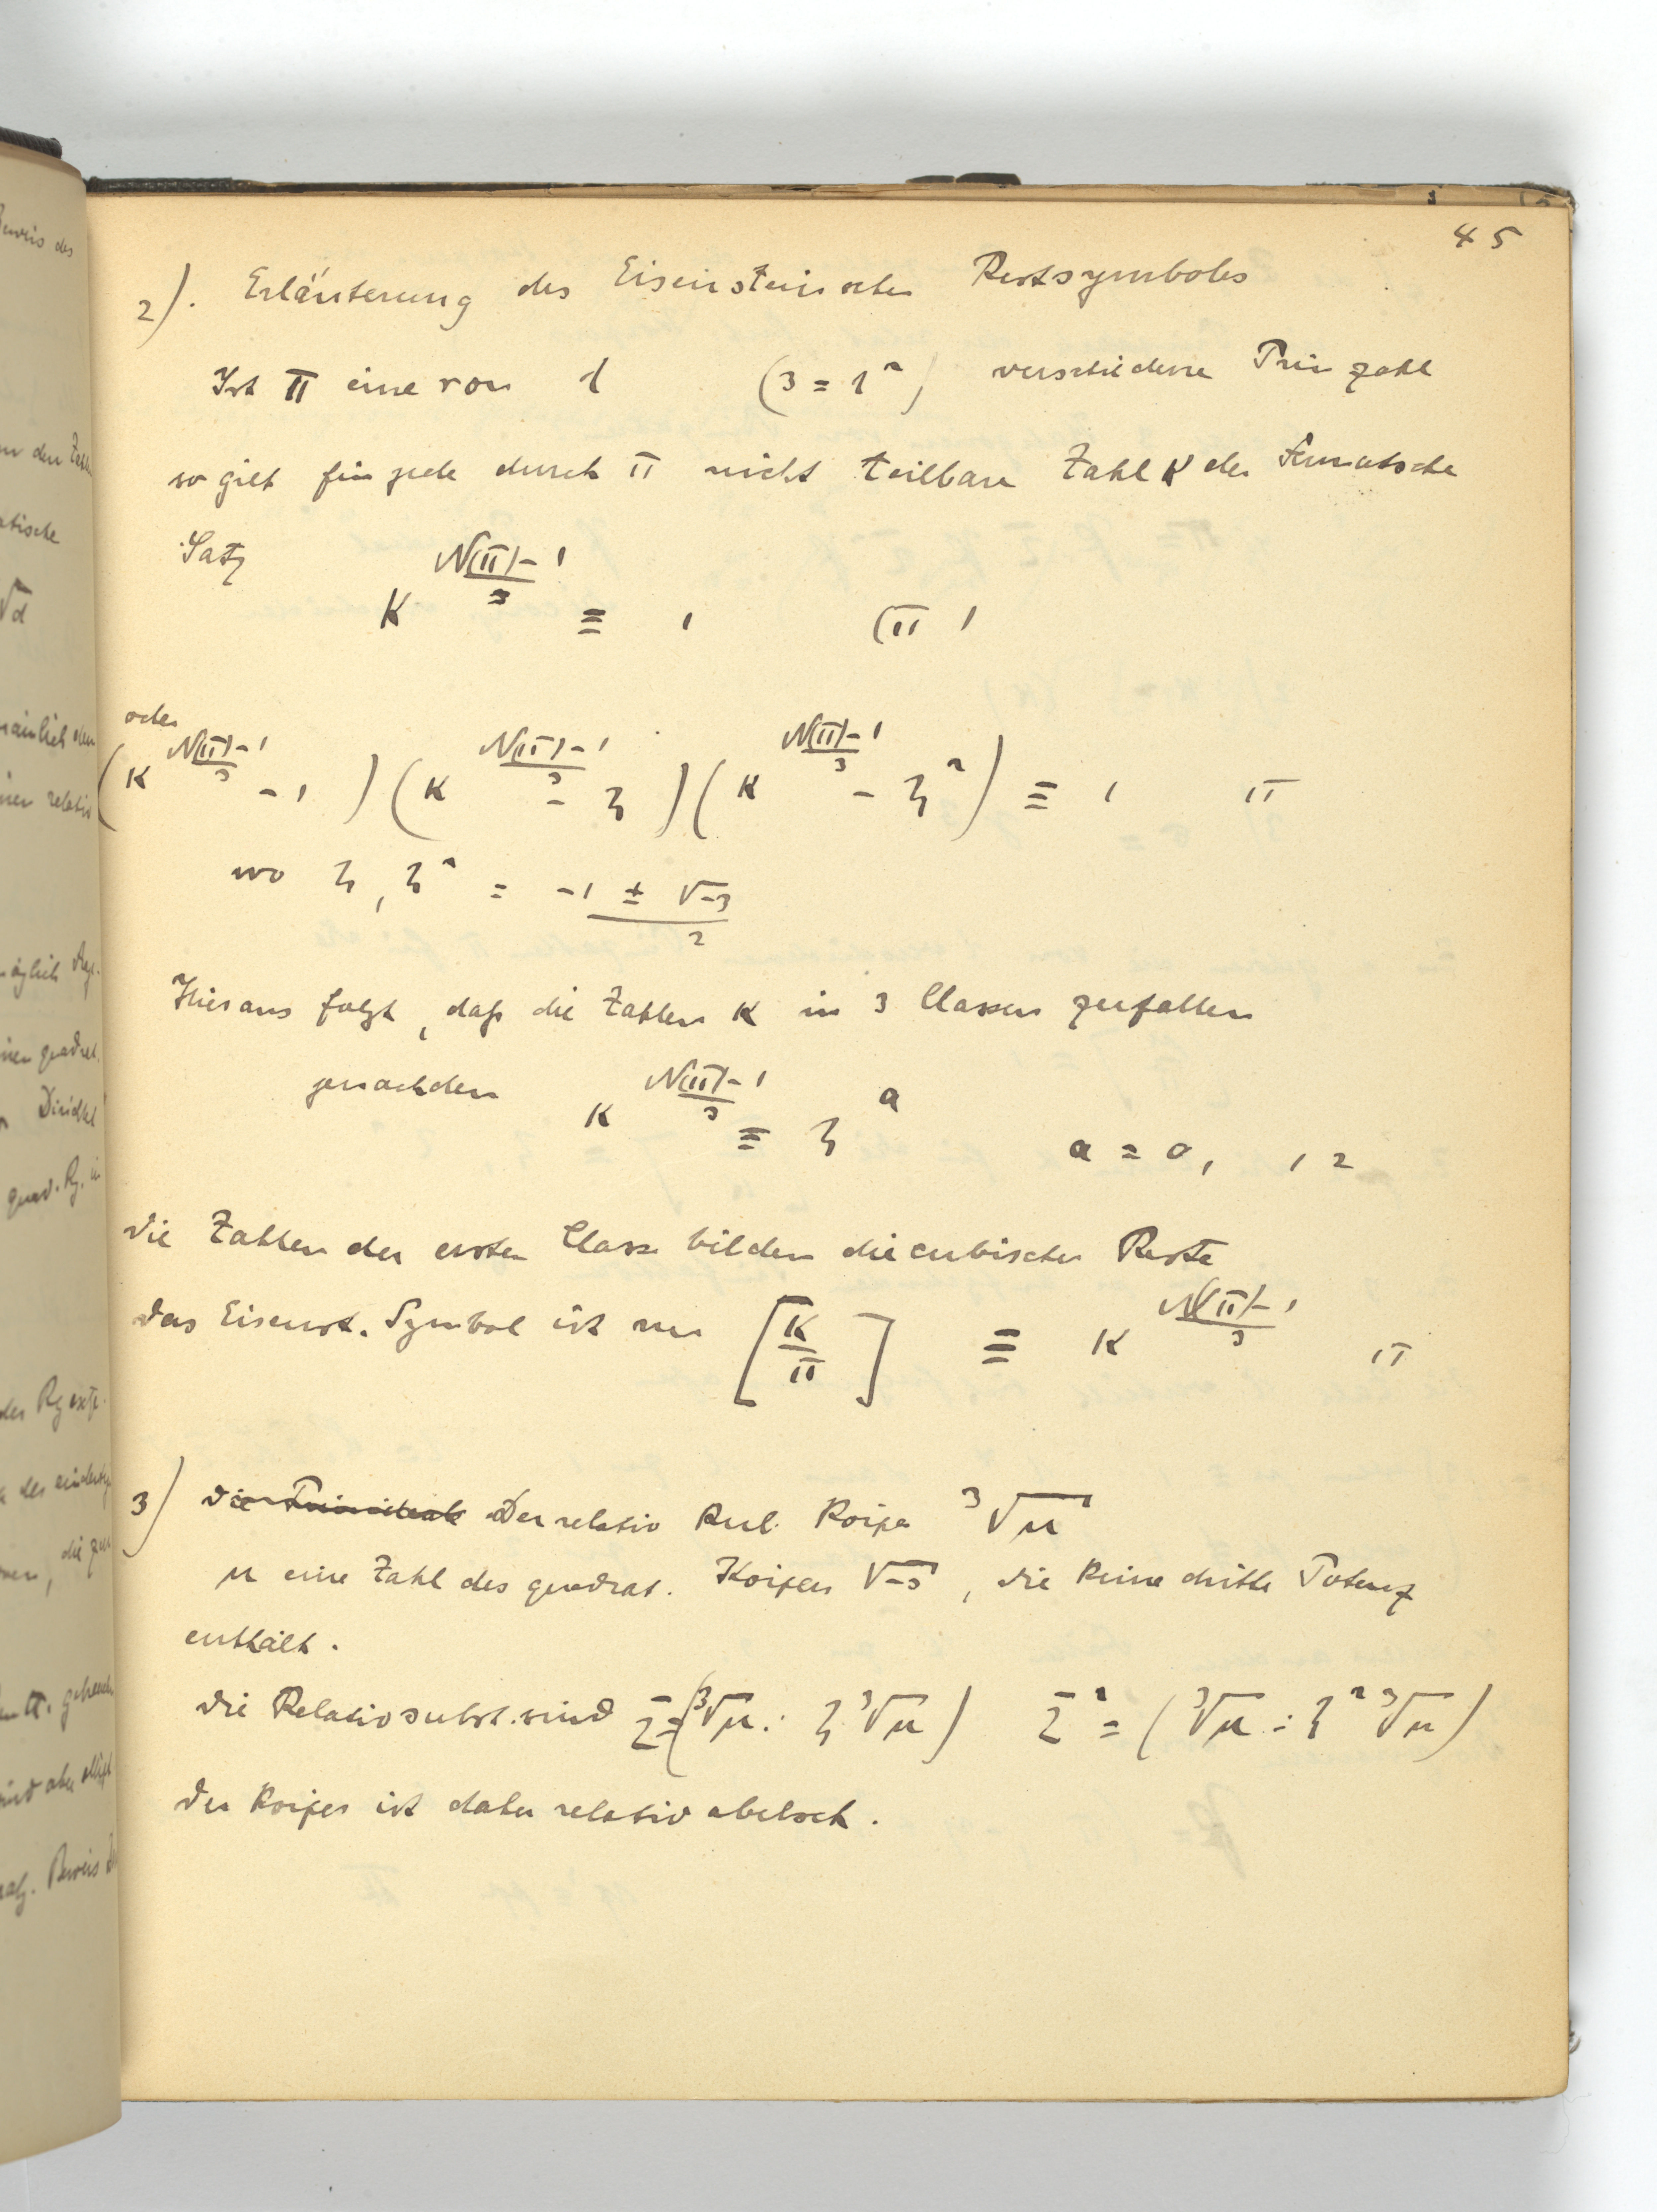 45
2). Erläuterung des Eisensteinschen Restsymboles
Ist π eine von l (3 = l²) verschiedene Primzahl
so gilt für jede durch π nicht teilbare Zahl κ der Fermatsche
Satz κ^{\frac{N(π)-1}{3}} ≡ 1 (π)
oder
(κ^{\frac{N(π)-1}{3}} - 1)(κ^{\frac{N(π)-1}{3}} - ζ)(κ^{\frac{N(π)-1}{3}} - ζ²) ≡ 1 π
wo ζ, ζ² = \frac{-1 ± √-3}{2}
Hieraus folgt, daß die Zahlen κ in 3 Classen zerfallen
jenachdem κ^{\frac{N(π)-1}{3}} ≡ ζ^a a = 0, 1 2
die Zahlen der ersten Classe bilden die cubischen Reste
das Eisenst. Symbol ist nun [\frac{κ}{π}] ≡ κ^{\frac{N(π)-1}{3}} π
3) die Primideale Der relativ kub. Körper ³√μ
μ eine Zahl des quadrat. Körpers √-3, die keine dritte Potenz
enthält.
die Relativsubst. sind Σ=(³√μ : ζ ³√μ) Σ² = (³√μ : ζ² ³√μ)
der Körper ist daher relativ abelsch.
Beweis des
√d
nämlich den
relativ
möglich
quadrat.
Dirichlet
quad. Rg. in
des Rg
die zu
Beweis